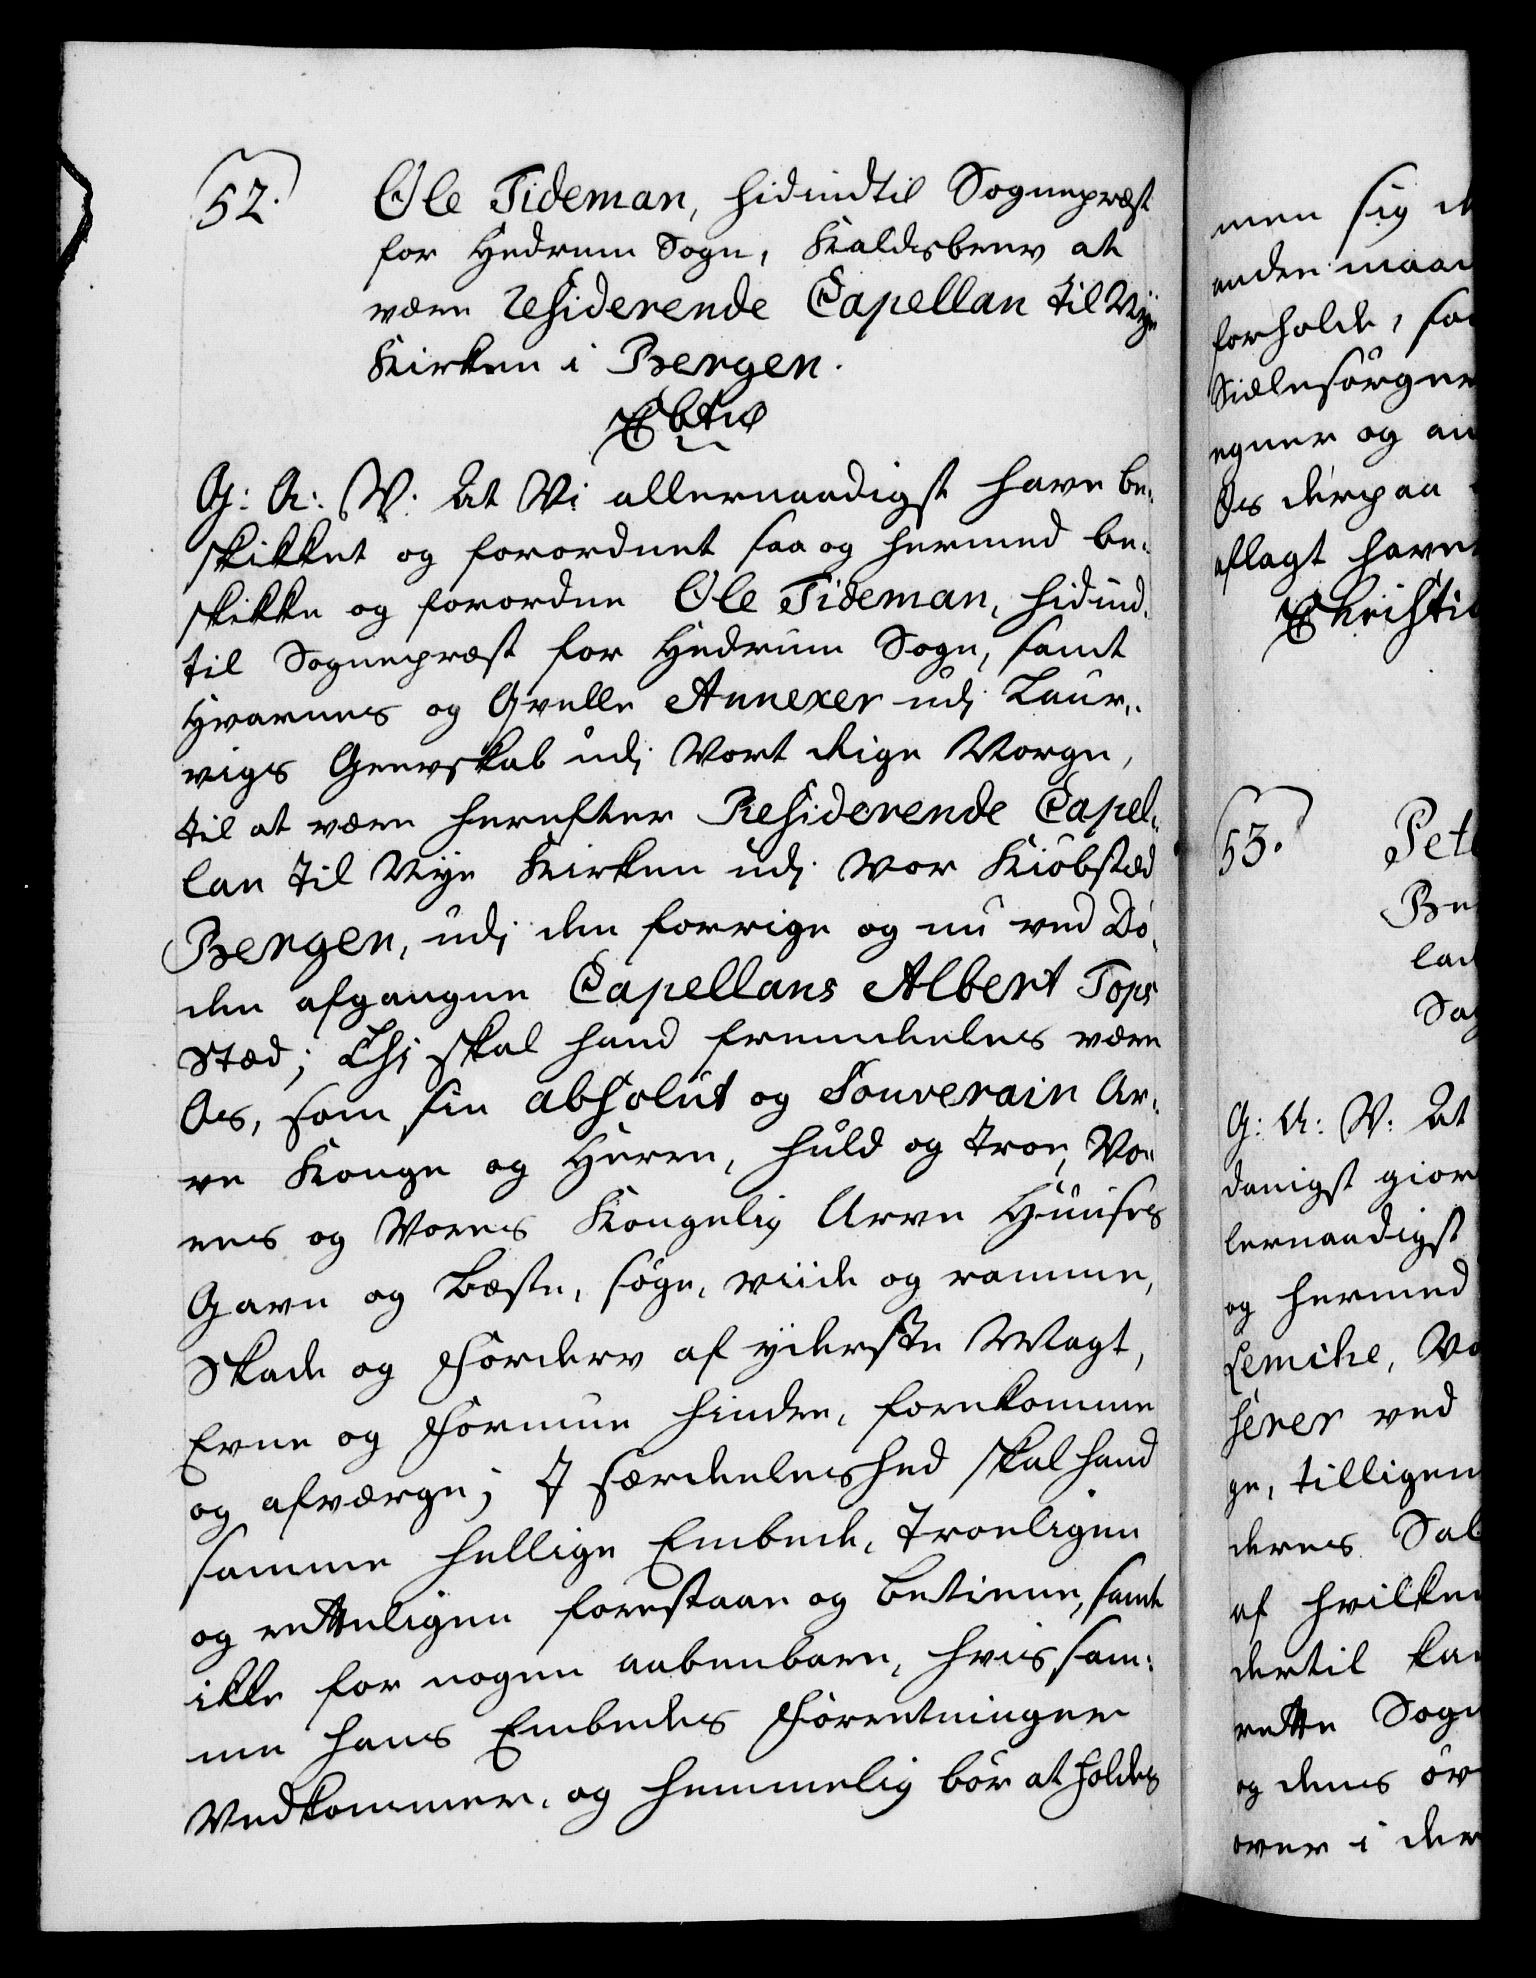 52.
Ole Tideman, hidindtil Sognepræst
for Hedrum Sogn, Kaldsbrev at
være Residerende Capellan til Nye
Kirken i Bergen.
G: A: W: At Vi allernaadigst have be-
skikket og forordnet saa og hermed be-
skikke og forordne Ole Tideman, hidind-
til Sognepræst for Hedrum Sogn, samt
Hvarnes og Qvelle Annexer udj Laur-
vigs Grevskab udj Vort Rige Norge,
til at være herefter Residerende Capel-
lan til Nye Kirken udj Vor Kiöbstæd
Bergen, udj den forrige og nu ved Dö-
den afgangne Capellans Albert Tops
Stæd; Thi skal hand fremdeeles være
Os, som sin absolut og Souverain Ar-
ve Konge og Herre, huld og troe, Vo-
res og Vores Kongelig Arve Huuses
Gavn og Bæste, söge, viide og ramme,
Skade og Forderv af yderste Magt,
Evne og Formue hindre, forekomme
og afværge; I særdeeleshed skal hand
samme hellige Embede, Troeligen
og retteligen forestaae og betiene, samt
ikke for nogen aabenbare, hvis sam-
me hans Embedes Forretninger
Vedkommer, og hemmelig bör at holdes
men sig
anden maa
forholde, saa
Siælesörger
egner og an
Os derpaa
aflagt have
Christi
53.
Pet
lad
G: A: W: At
danigst gior
lernaadigst
og hermed
Lemche, Vo
serer ved
ge, tilligem
deres Sal
af hvilken
dertil ka
rette Sogn
og dens öv
over i der